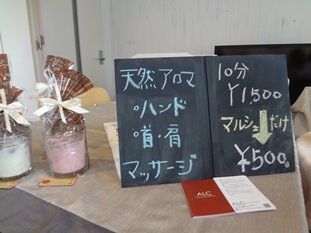 天然アロマ
・ハンド
・首・肩
マッサージ
10分
¥1,500
マルシェだけ
¥500
ALC